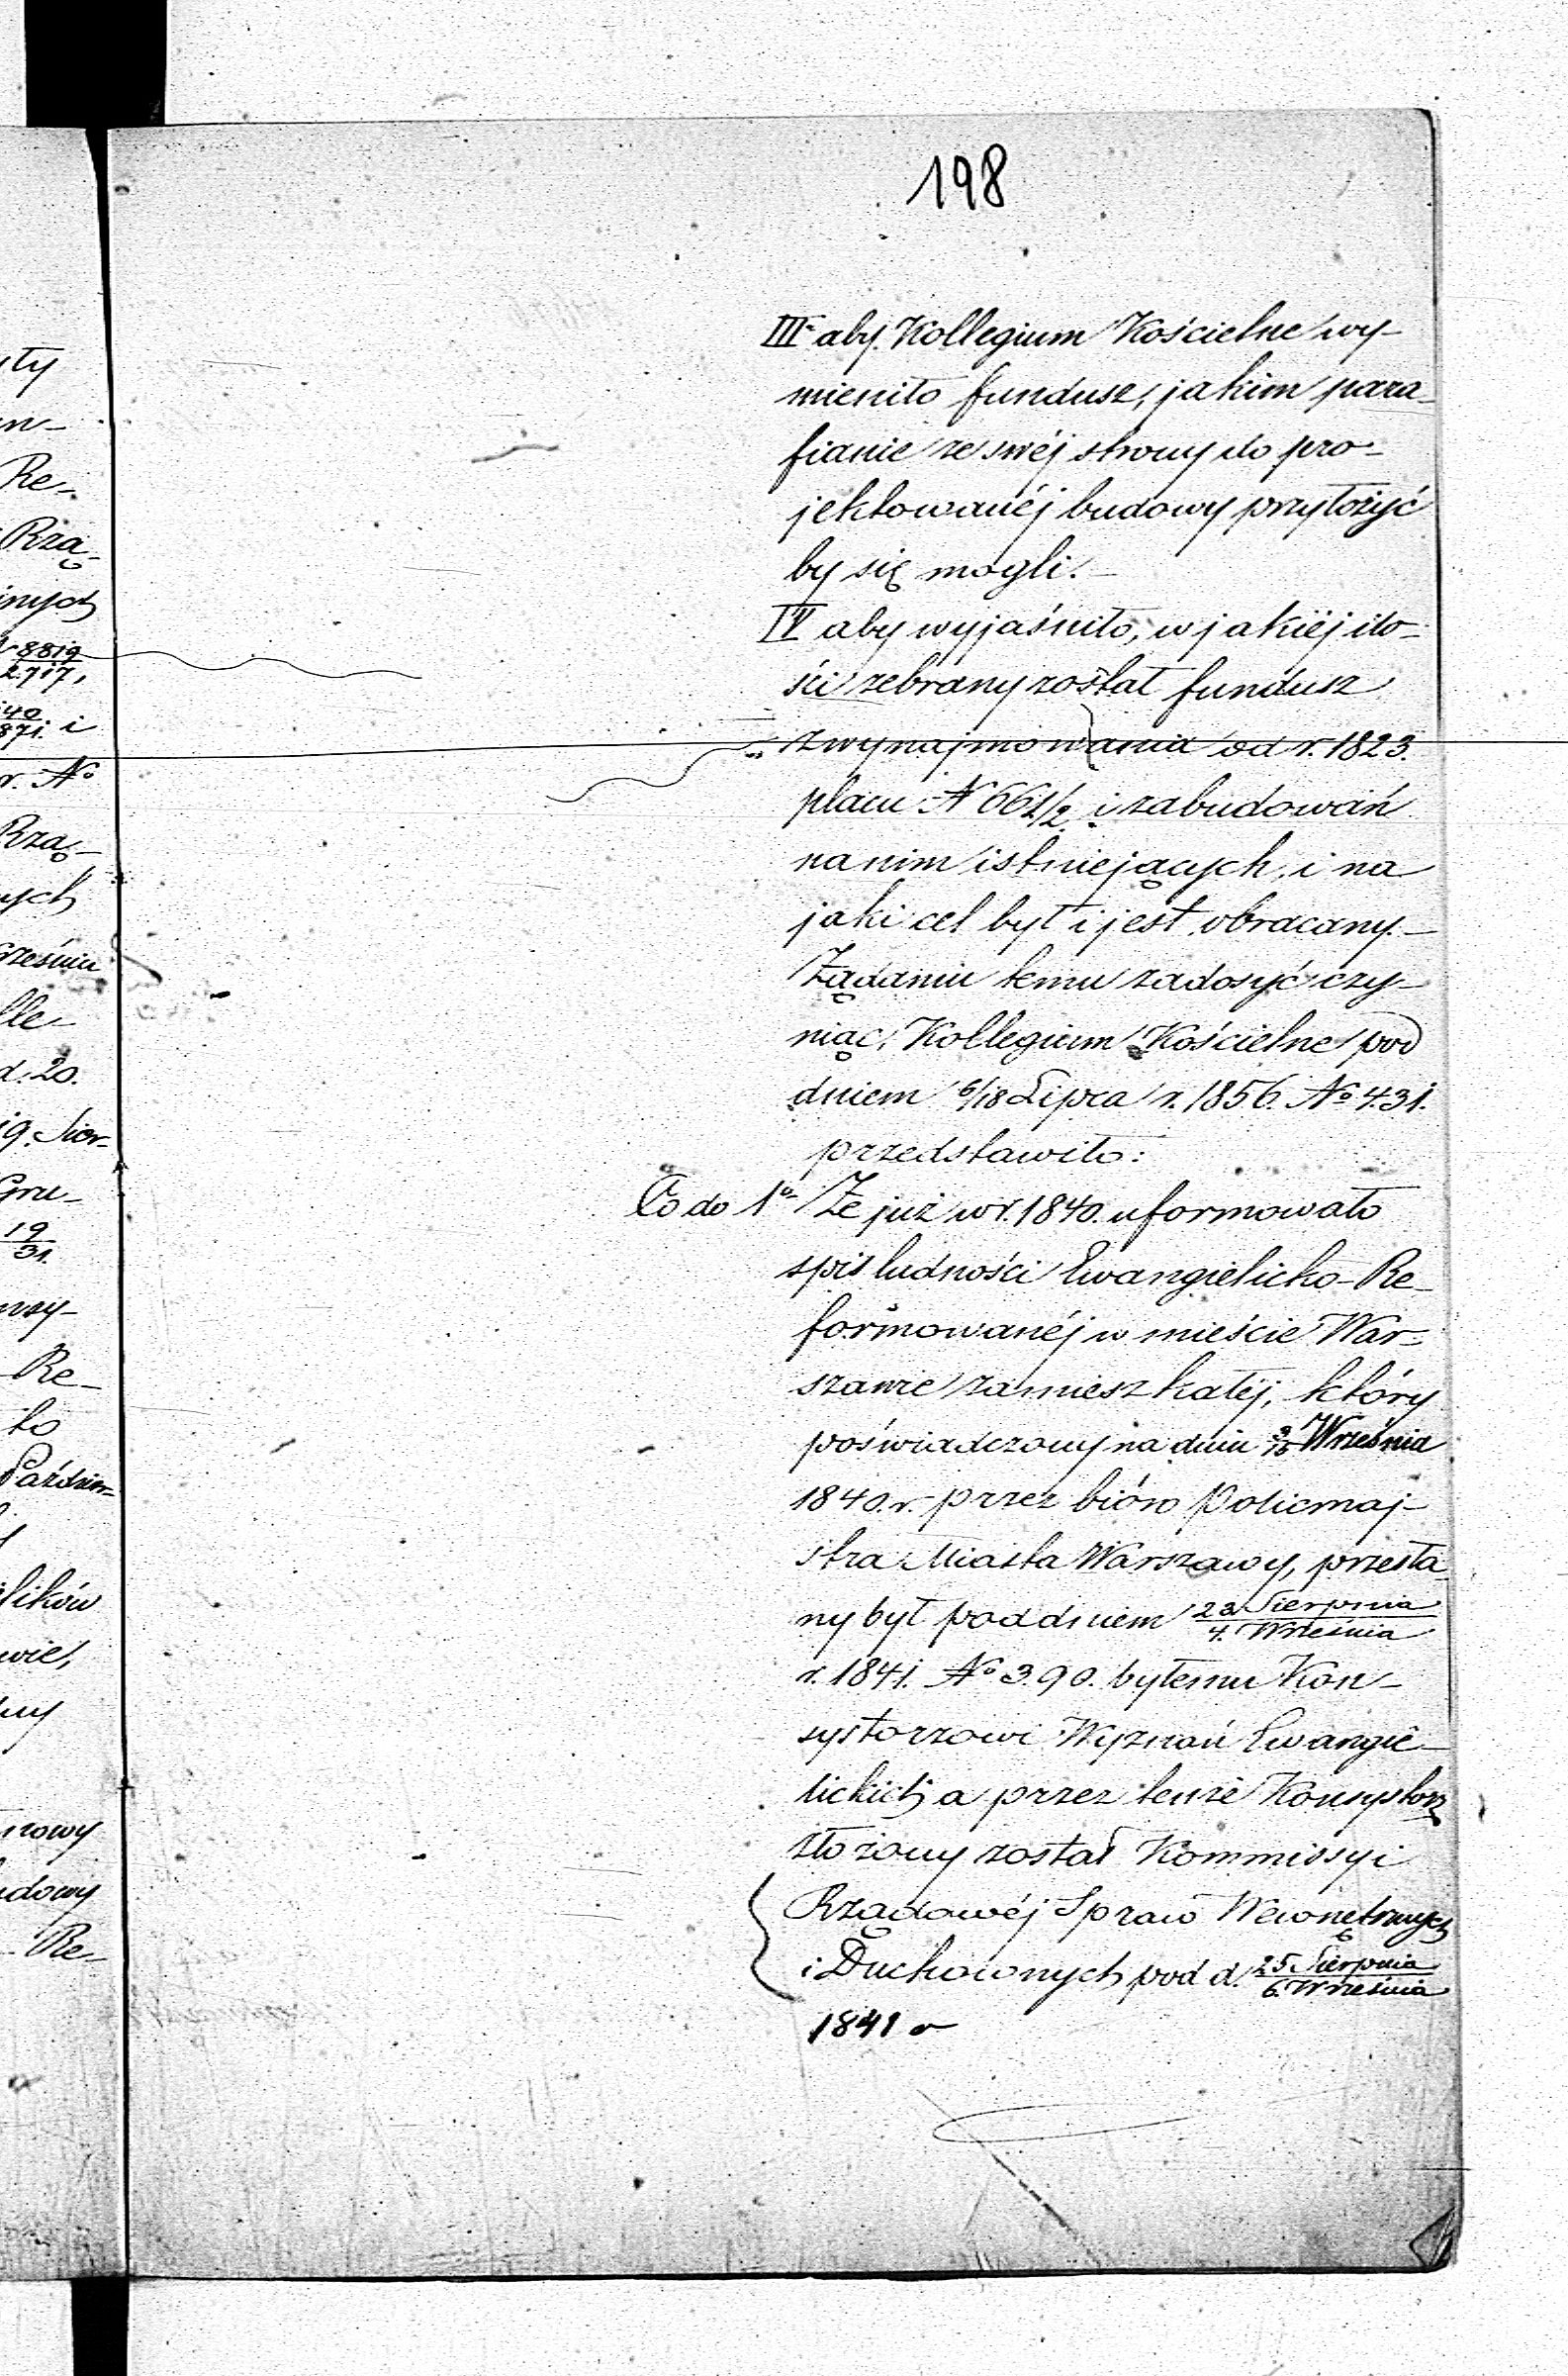 198
III aby Kollegium Kościelne wy-
mieniło fundusz, jakim para-
fianie ze swéj strony do pro-
jektowanéj budowy przyłożyć
by się mogli.-
IV aby wyjaśniło, w jakiéj ilo-
ści zebrany został fundusz
z wynajmowania od r. 1823.
placu N 66 1/2 i zabudowań
na nim istniejących, i na
jaki cel był i jest obracany.-
Żądaniu temu zadosyć czy-
niąc, Kollegium Kościelne pod
dniem 6/18 Lipca r. 1856. No 431.
przedstawiło:
Co do 1o Że już w r. 1840. uformowało
spis ludności Ewangielicko-Re-
formowanéj w mieście War-
szawie zamieszkałéj, który
poświadczony na dniu 3/15 Września
1840. r. przez bióro Policmaj-
stra Miasta Warszawy, przesła-
ny był pod dniem 23 Sierpnia / 4. Września
r. 1841. No 390. byłemu Kon-
systorzowi Wyznań Ewangie-
lickich a przez tenże Konsystorz
złożony został Kommissyi
Rządowéj Spraw Wewnętrznych
i Duchownych pod d. 25 Sierpnia / 6. Września
1841 r
ły
Re-
Rzą-
nych
8819
2717,
40
871. i
r. No
Rzą-
ych
rześniu
lle
d. 20.
19. Sier-
Gru-
19
31.
Re-
to
Paździer-
lików
wie,
ny
nowy
udowy
Re-